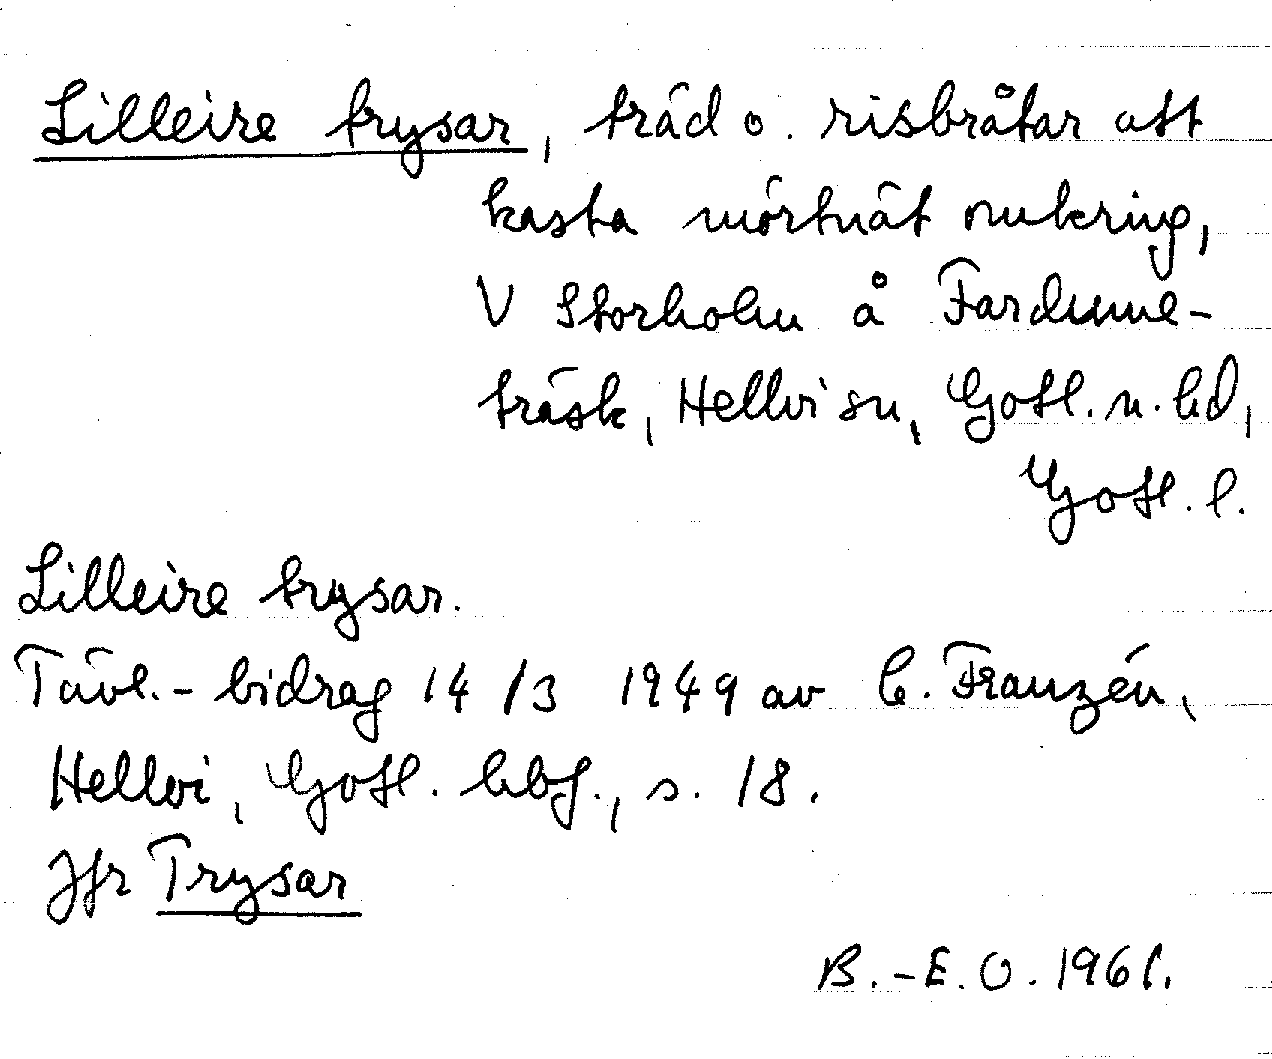 Lilleire trysar, träd o. risbråtar att
kasta mörtnät omkring,
V Storholm å Fardume-
träsk, Hellvi sn, Gotl. n. hd,
Gotl. l.
Lilleire trysar.
Tävl.-bidrag 14/3 1949 av C. Franzén,
Hellvi, Gotl. hbf., s. 18.
Jfr Trysar
B.-E. O. 1961.